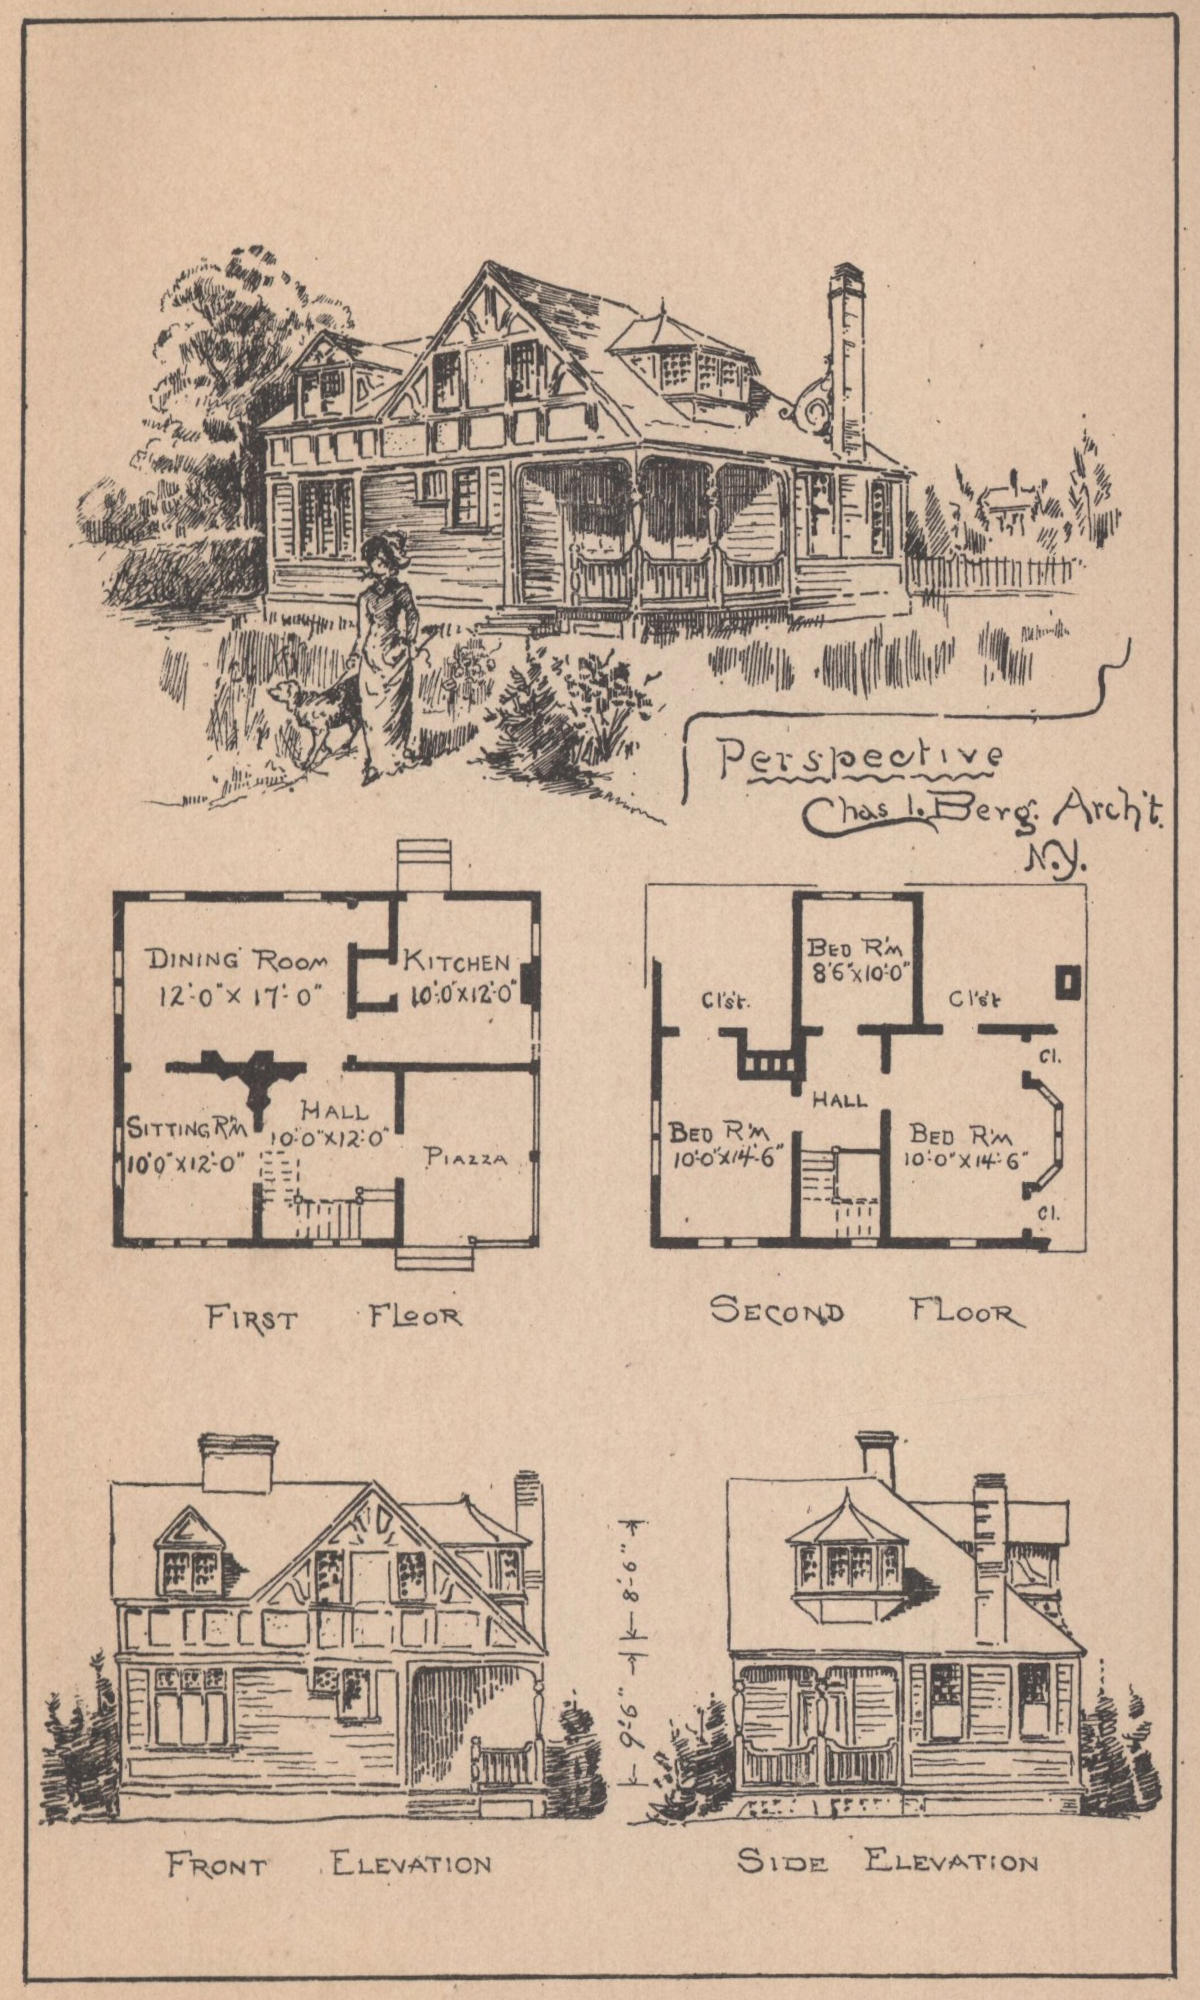 Perspective
Chas. I. Berg. Arch't.
N.Y.
DINING ROOM
12'-0" X 17'-0"
KITCHEN
10'-0" X 12'-0"
SITTING R'M
10'0" X 12'-0"
HALL
10'-0" X 12'-0"
PIAZZA
FIRST FLOOR
BED R'M
8'6" X 10'-0"
Cl's't.
Cl's't
Cl.
HALL
BED R'M
10'-0" X 14'-6"
BED R'M
10'-0" X 14'-6"
Cl.
SECOND FLOOR
8'-6"
9'-6"
FRONT ELEVATION
SIDE ELEVATION